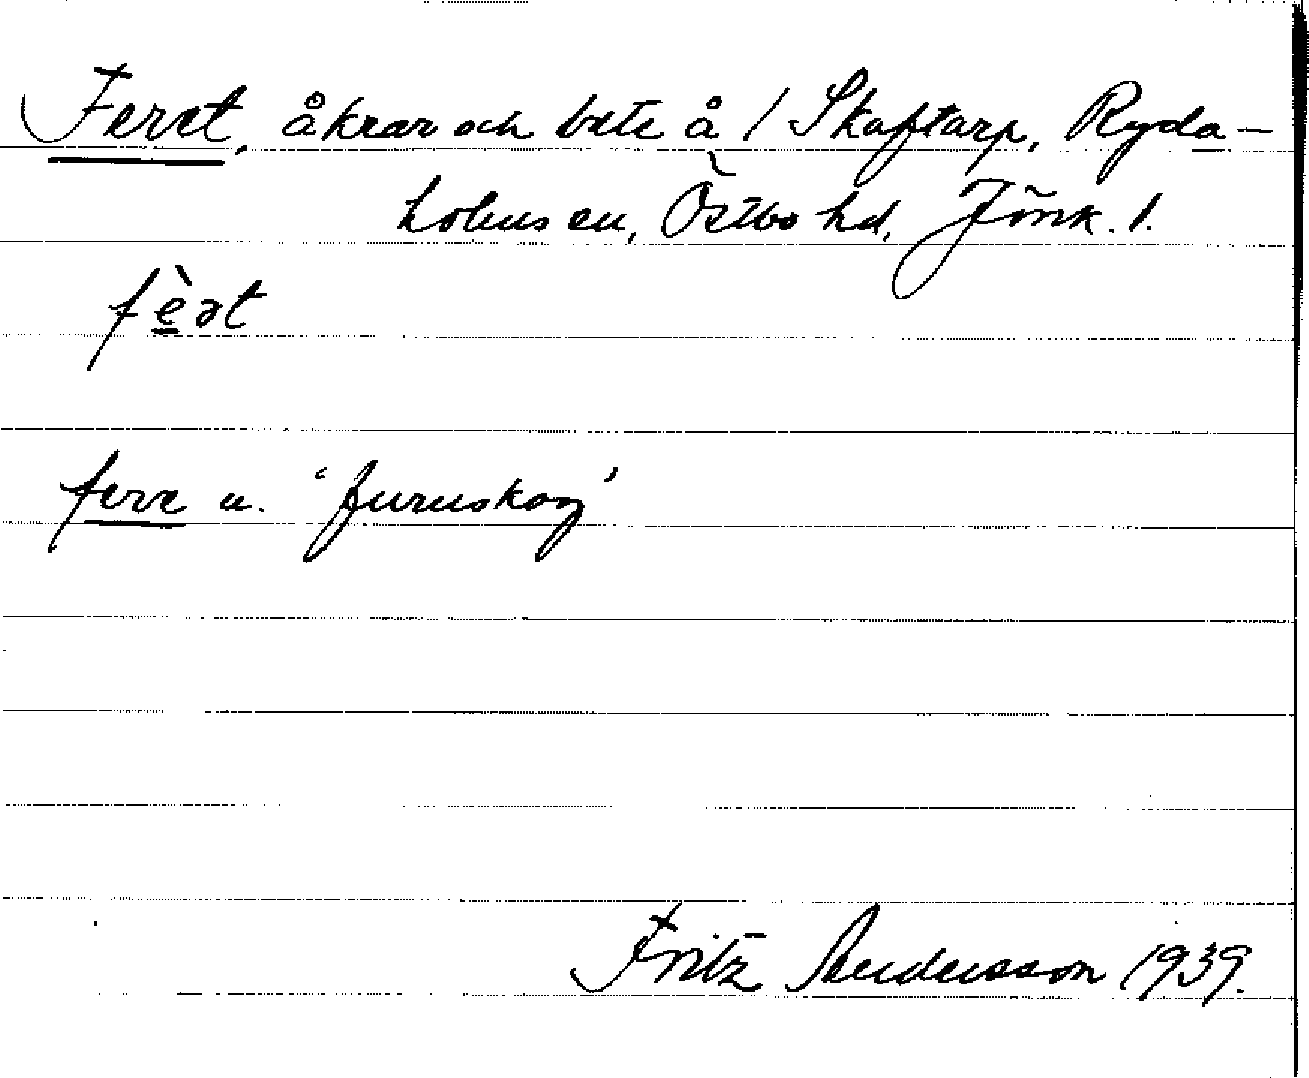 Feret, åkrar och bete å 1 Skaftarp, Ryda-
holms sn, Östbo hd, Jönk. l.
fè̱ət
fere n. 'furuskog'
Fritz Andersson 1939.